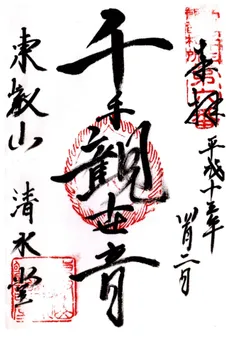 奉拝
平成十三年
月二日
千手観世音
東叡山
清水堂